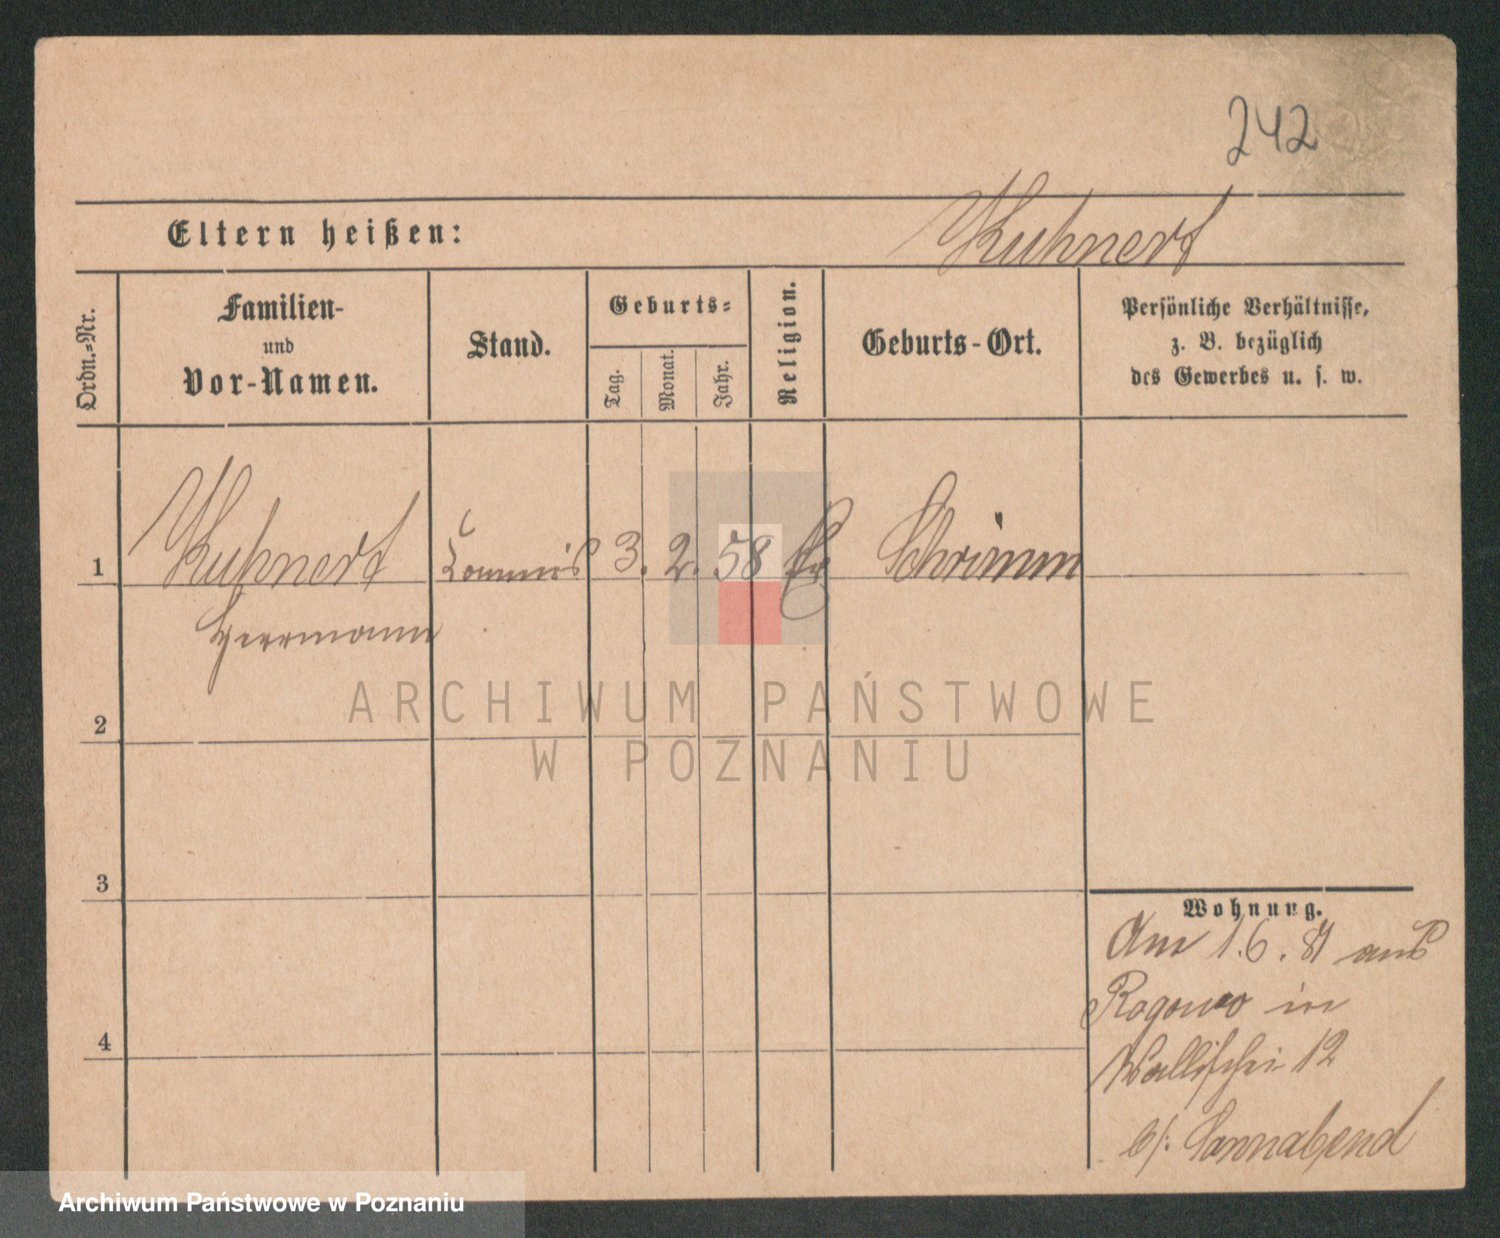 242
Eltern heißen: Kuhnert
Ordn.-Nr.
Familien-
und
Vor-Namen.
Stand.
Geburts-
Tag.
Monat.
Jahr.
Religion.
Geburts-Ort.
Persönliche Verhältnisse,
z. B. bezüglich
des Gewerbes u. s. w.
1 Kuhnert Commis 3. 2. 58 Schrimm
Herrmann
2
3
4
Wohnung.
Am 1.6.81 aus
Rogowo in
Wallischei 12
b/. Sonnabend
ARCHIWUM PAŃSTWOWE
W POZNANIU
Archiwum Państwowe w Poznaniu